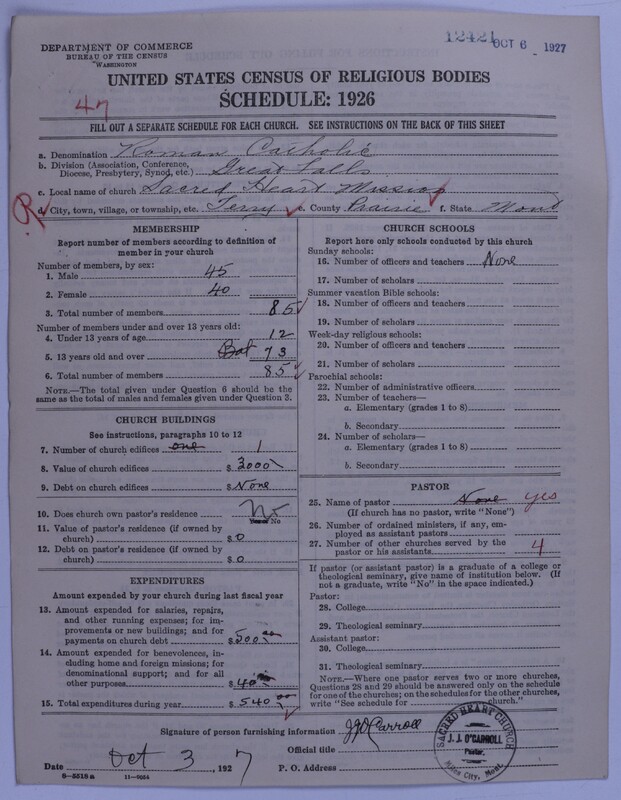 DEPARTMENT OF COMMERCE
BUREAU OF THE CENSUS
WASHINGTON
12421 OCT 6 - 1927
UNITED STATES CENSUS OF RELIGIOUS BODIES
SCHEDULE: 1926
47
FILL OUT A SEPARATE SCHEDULE FOR EACH CHURCH. SEE INSTRUCTIONS ON THE BACK OF THIS SHEET
a. Denomination Roman Catholic
b. Division (Association, Conference, Diocese, Presbytery, Synod, etc.) Great Falls
c. Local name of church Sacred Heart Mission
R d. City, town, village, or township, etc. Terry e. County Prairie f. State Mont
MEMBERSHIP
Report number of members according to definition of
member in your church
Number of members, by sex:
1. Male 45
2. Female 40
3. Total number of members 85
Number of members under and over 13 years old:
4. Under 13 years of age 12
5. 13 years old and over 73
6. Total number of members 85
NOTE.—The total given under Question 6 should be
the same as total of males and females given under Question 3.
CHURCH BUILDINGS
See instructions, paragraphs 10 to 12
7. Number of church edifices one 1
8. Value of church edifices $ 3000
9. Debt on church edifices $ None
10. Does church own pastor's residence No
Yes or No
11. Value of pastor's residence (if owned by
church) $ 0
12. Debt on pastor's residence (if owned by
church) $ 0
EXPENDITURES
Amount expended by your church during last fiscal year
13. Amount expended for salaries, repairs,
and other running expenses; for im-
provements or new buildings; and for
payments on church debt $ 500
14. Amount expended for benevolences, in-
cluding home and foreign missions; for
denominational support; and for all
other purposes $ 40
15. Total expenditures during year $ 540 00
CHURCH SCHOOLS
Report here only schools conducted by this church
Sunday schools:
16. Number of officers and teachers None
17. Number of scholars
Summer vacation Bible schools:
18. Number of officers and teachers
19. Number of scholars
Week-day religious schools:
20. Number of officers and teachers
21. Number of scholars
Parochial schools:
22. Number of administrative officers
23. Number of teachers—
a. Elementary (grades 1 to 8)
b. Secondary
24. Number of scholars—
a. Elementary (grades 1 to 8)
b. Secondary
PASTOR
25. Name of pastor None yes
(If church has no pastor, write "None")
26. Number of ordained ministers, if any, em-
ployed as assistant pastors
27. Number of other churches served by the
pastor or his assistants 4
If pastor (or assistant pastor) is a graduate of a college or
theological seminary, give name of institution below. (If
not a graduate, write "No" in the space indicated.)
Pastor:
28. College
29. Theological seminary
Assistant pastor:
30. College
31. Theological seminary
NOTE.—Where one pastor serves two or more churches,
Questions 28 and 29 should be answered only on the schedule
for one of the churches; on the schedules for the other churches,
write "See schedule for church."
Signature of person furnishing information J J O'Carroll
Official title
Date Oct 3, 1927 P. O. Address
8-5518 a 11-9064
SACRED HEART CHURCH
J. J. O'CARROLL
Pastor,
Miles City, Mont.